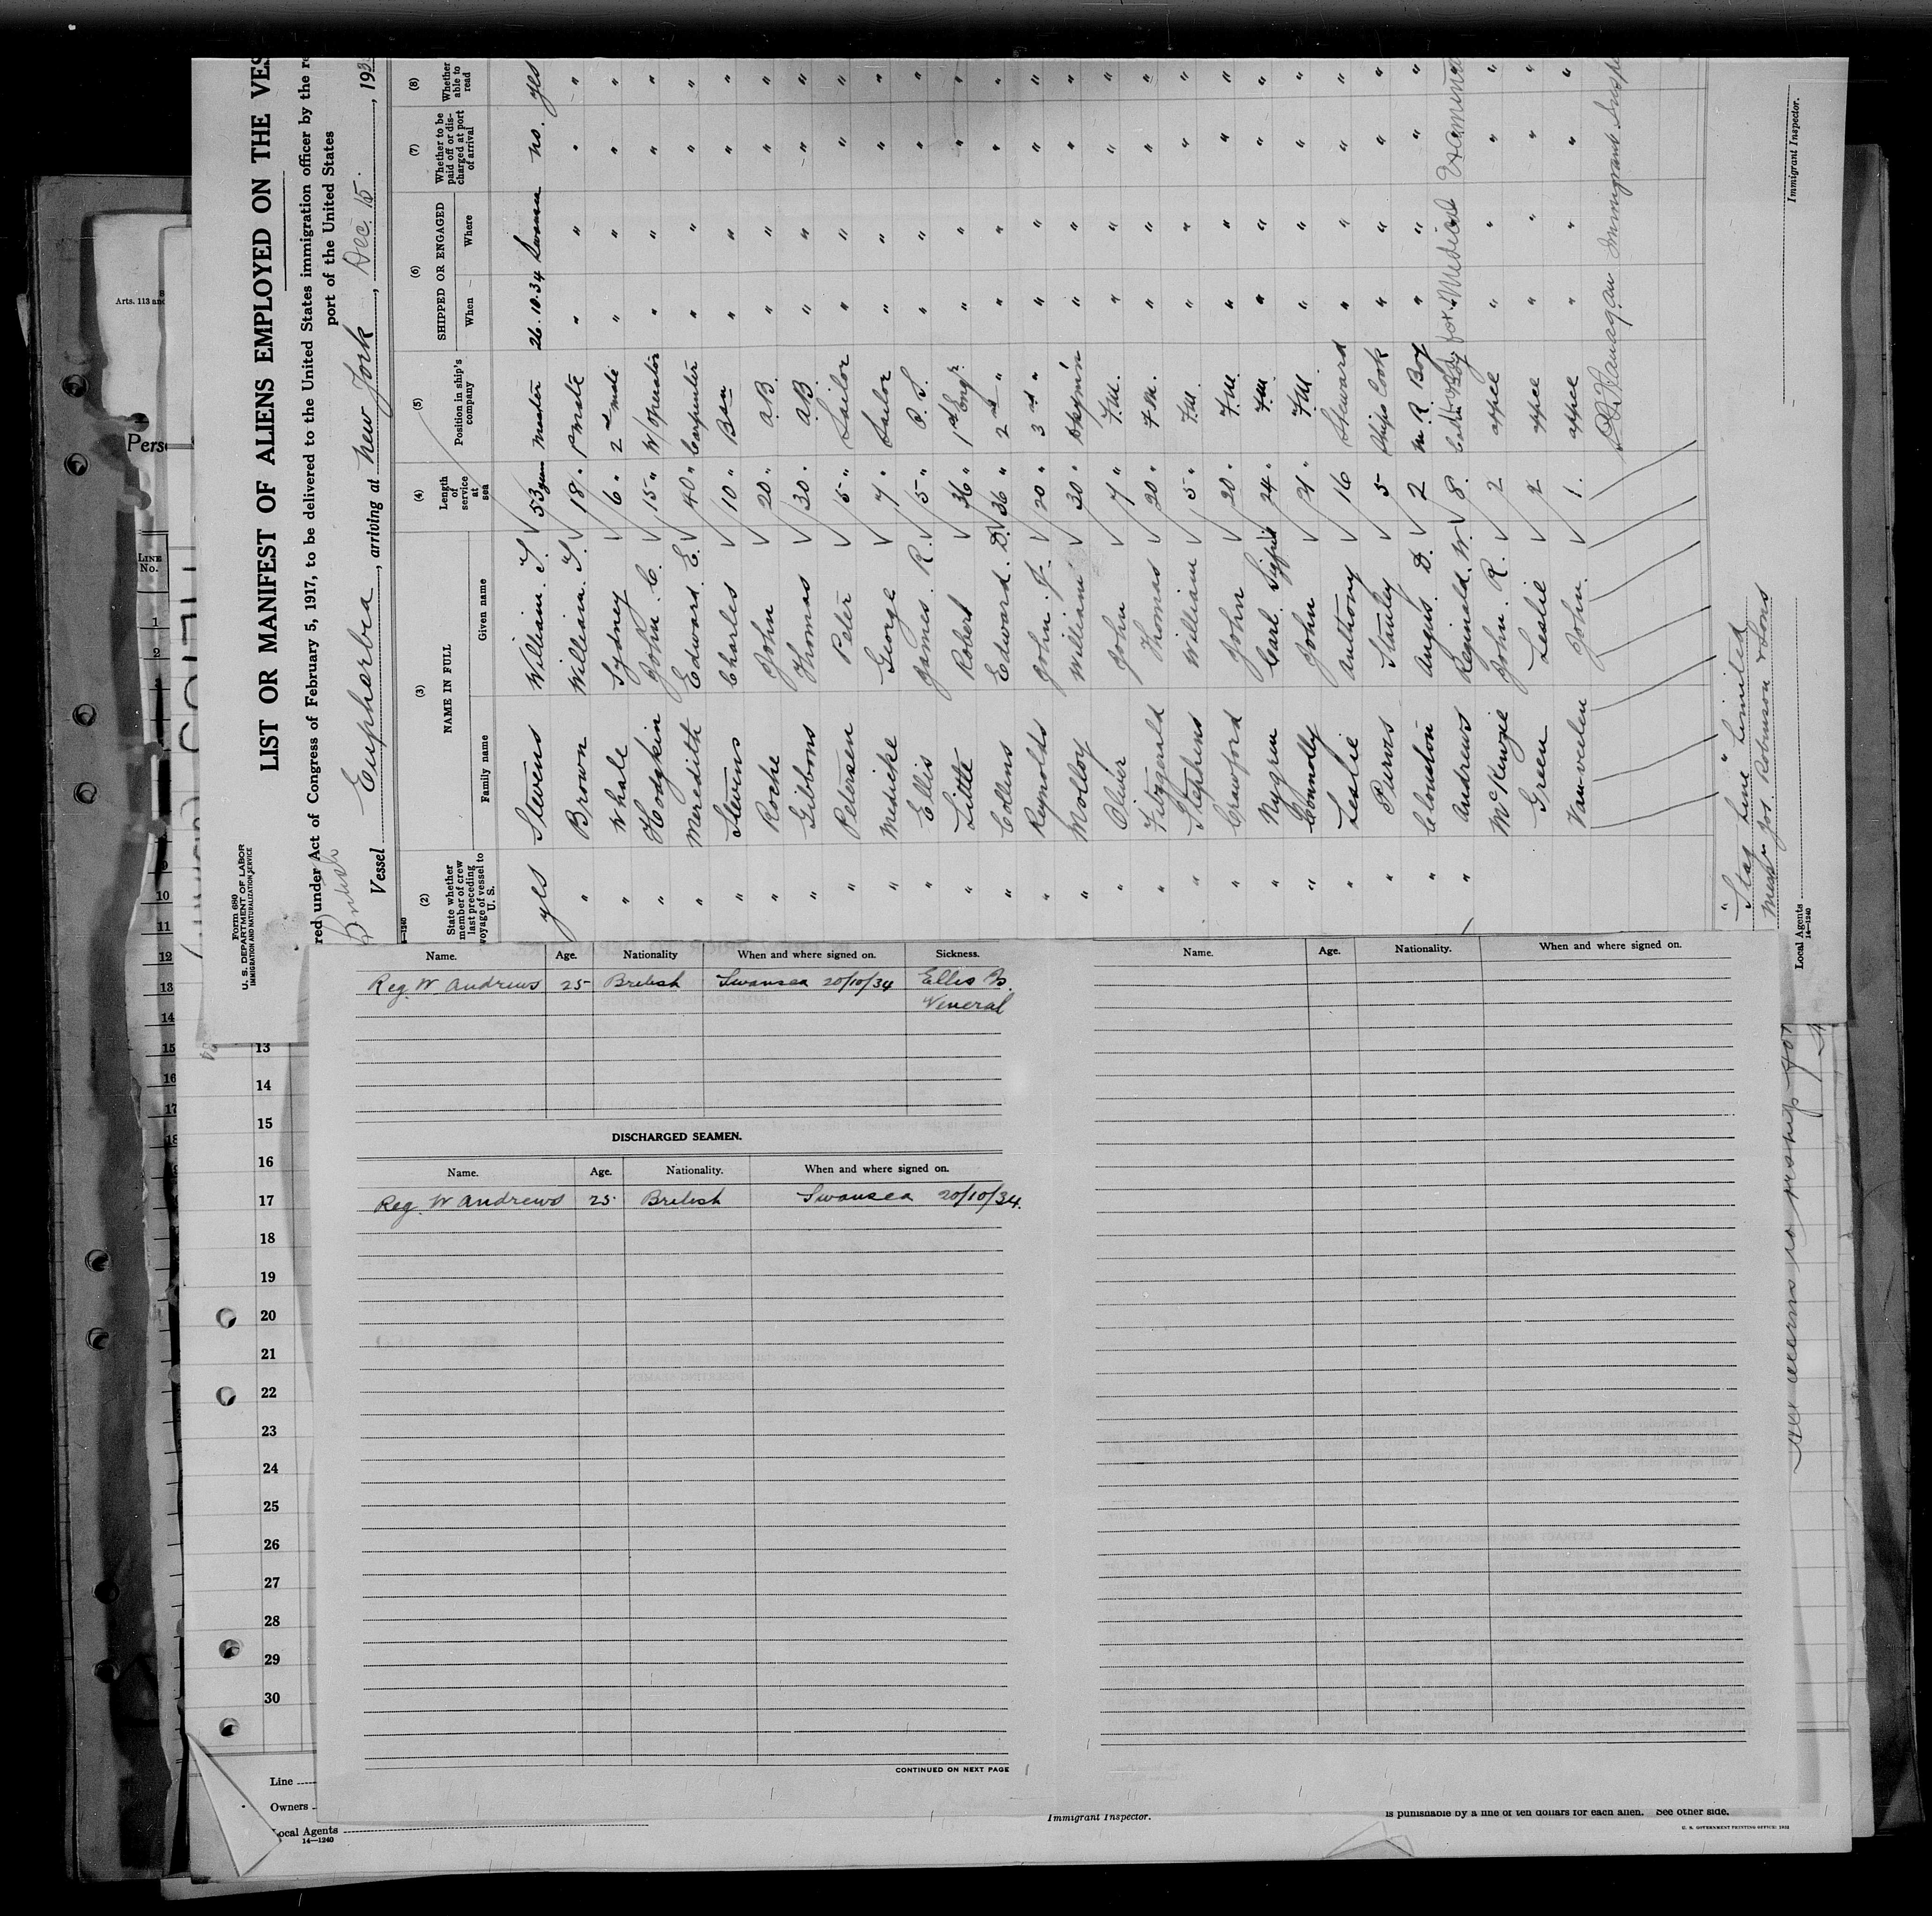 Form 680
U. S. DEPARTMENT OF LABOR
IMMIGRATION AND NATURALIZATION SERVICE
LIST OR MANIFEST OF ALIENS EMPLOYED ON THE VES
red under Act of Congress of February 5, 1917, to be delivered to the United States immigration officer by the re
port of the United States
British
Vessel Eupharbia, arriving at New York, Dec. 15, 193
14—1240
(2) (3) (4) (5) (6) (7) (8)
State whether member of crew last preceding voyage of vessel to U. S.
NAME IN FULL
Family name Given name
Length of service at sea
Position in ship's company
SHIPPED OR ENGAGED
When Where
Whether to be paid off or discharged at port of arrival
Whether able to read
yes Stevens William. T. 53 years Master 26.10.34 Swansea no. yes
" Brown William. T. 18 " 1st Mate " " " "
" Whale Sydney 6 " 2nd mate " " " "
" Hodgkin John. C. 15 " W/Operator " " " "
" Meredith Edward. E. 40 " Carpenter " " " "
" Stevens Charles 10 " Bsn " " " "
" Roche John 20 " A.B. " " " "
" Gibbons Thomas 30 " A.B. " " " "
" Petersen Peter 5 " Sailor " " " "
" Medicke George 7 " Sailor " " " "
" Ellis James. R. 5 " O.S. " " " "
" Little Robert 36 " 1st Engr. " " " "
" Collins Edward. D. 36 " 2nd " " " " "
" Reynolds John. J. 20 " 3rd " " " " "
" Molloy William 30 " Dkym'n " " " "
" Olivier John 7 " F.M. " " " "
" Fitzgerald Thomas 20 " F.M. " " " "
" Stephens William 5 " F.M. " " " "
" Crawford John 20 " F.M. " " " "
" Nygren Carl. 24 " F.M. " " " "
" Connolly John 21 " F.M. " " " "
" Leslie Anthony 16 Steward " " " "
" Purves Stanley 5 Ships Cook " " " "
" Clouston Angus. D. 2 M. R. Boy " " " "
" Andrews Reginald. W. 8. Cabin Boy for Medical Examina
McKenzie John. R. 2 appce " " " "
Green Leslie 2 appce " " " "
Van-veelen John. 1. appce " " " "
Flanagan Immigrant Inspe
"Stag Line" Limited
Messrs Jos. Robinson & Sons
Local Agents
14—1240
Immigrant Inspector.
Arts. 113 and
Perso
LINE No.
1
2
9
10
11
12
13
14
15
16
17
18
Name. Age. Nationality When and where signed on. Sickness.
Reg. W Andrews 25 British Swansea 20/10/34 Ellis Is.
Veneral
DISCHARGED SEAMEN.
Name. Age. Nationality. When and where signed on.
Reg. W Andrews 25 British Swansea 20/10/34.
CONTINUED ON NEXT PAGE
Name. Age. Nationality. When and where signed on.
13
14
15
16
17
18
19
20
21
22
23
24
25
26
27
28
29
30
Line
Owners
Local Agents
14—1240
Immigrant Inspector.
is punishable by a fine of ten dollars for each alien. See other side.
U. S. GOVERNMENT PRINTING OFFICE: 1931